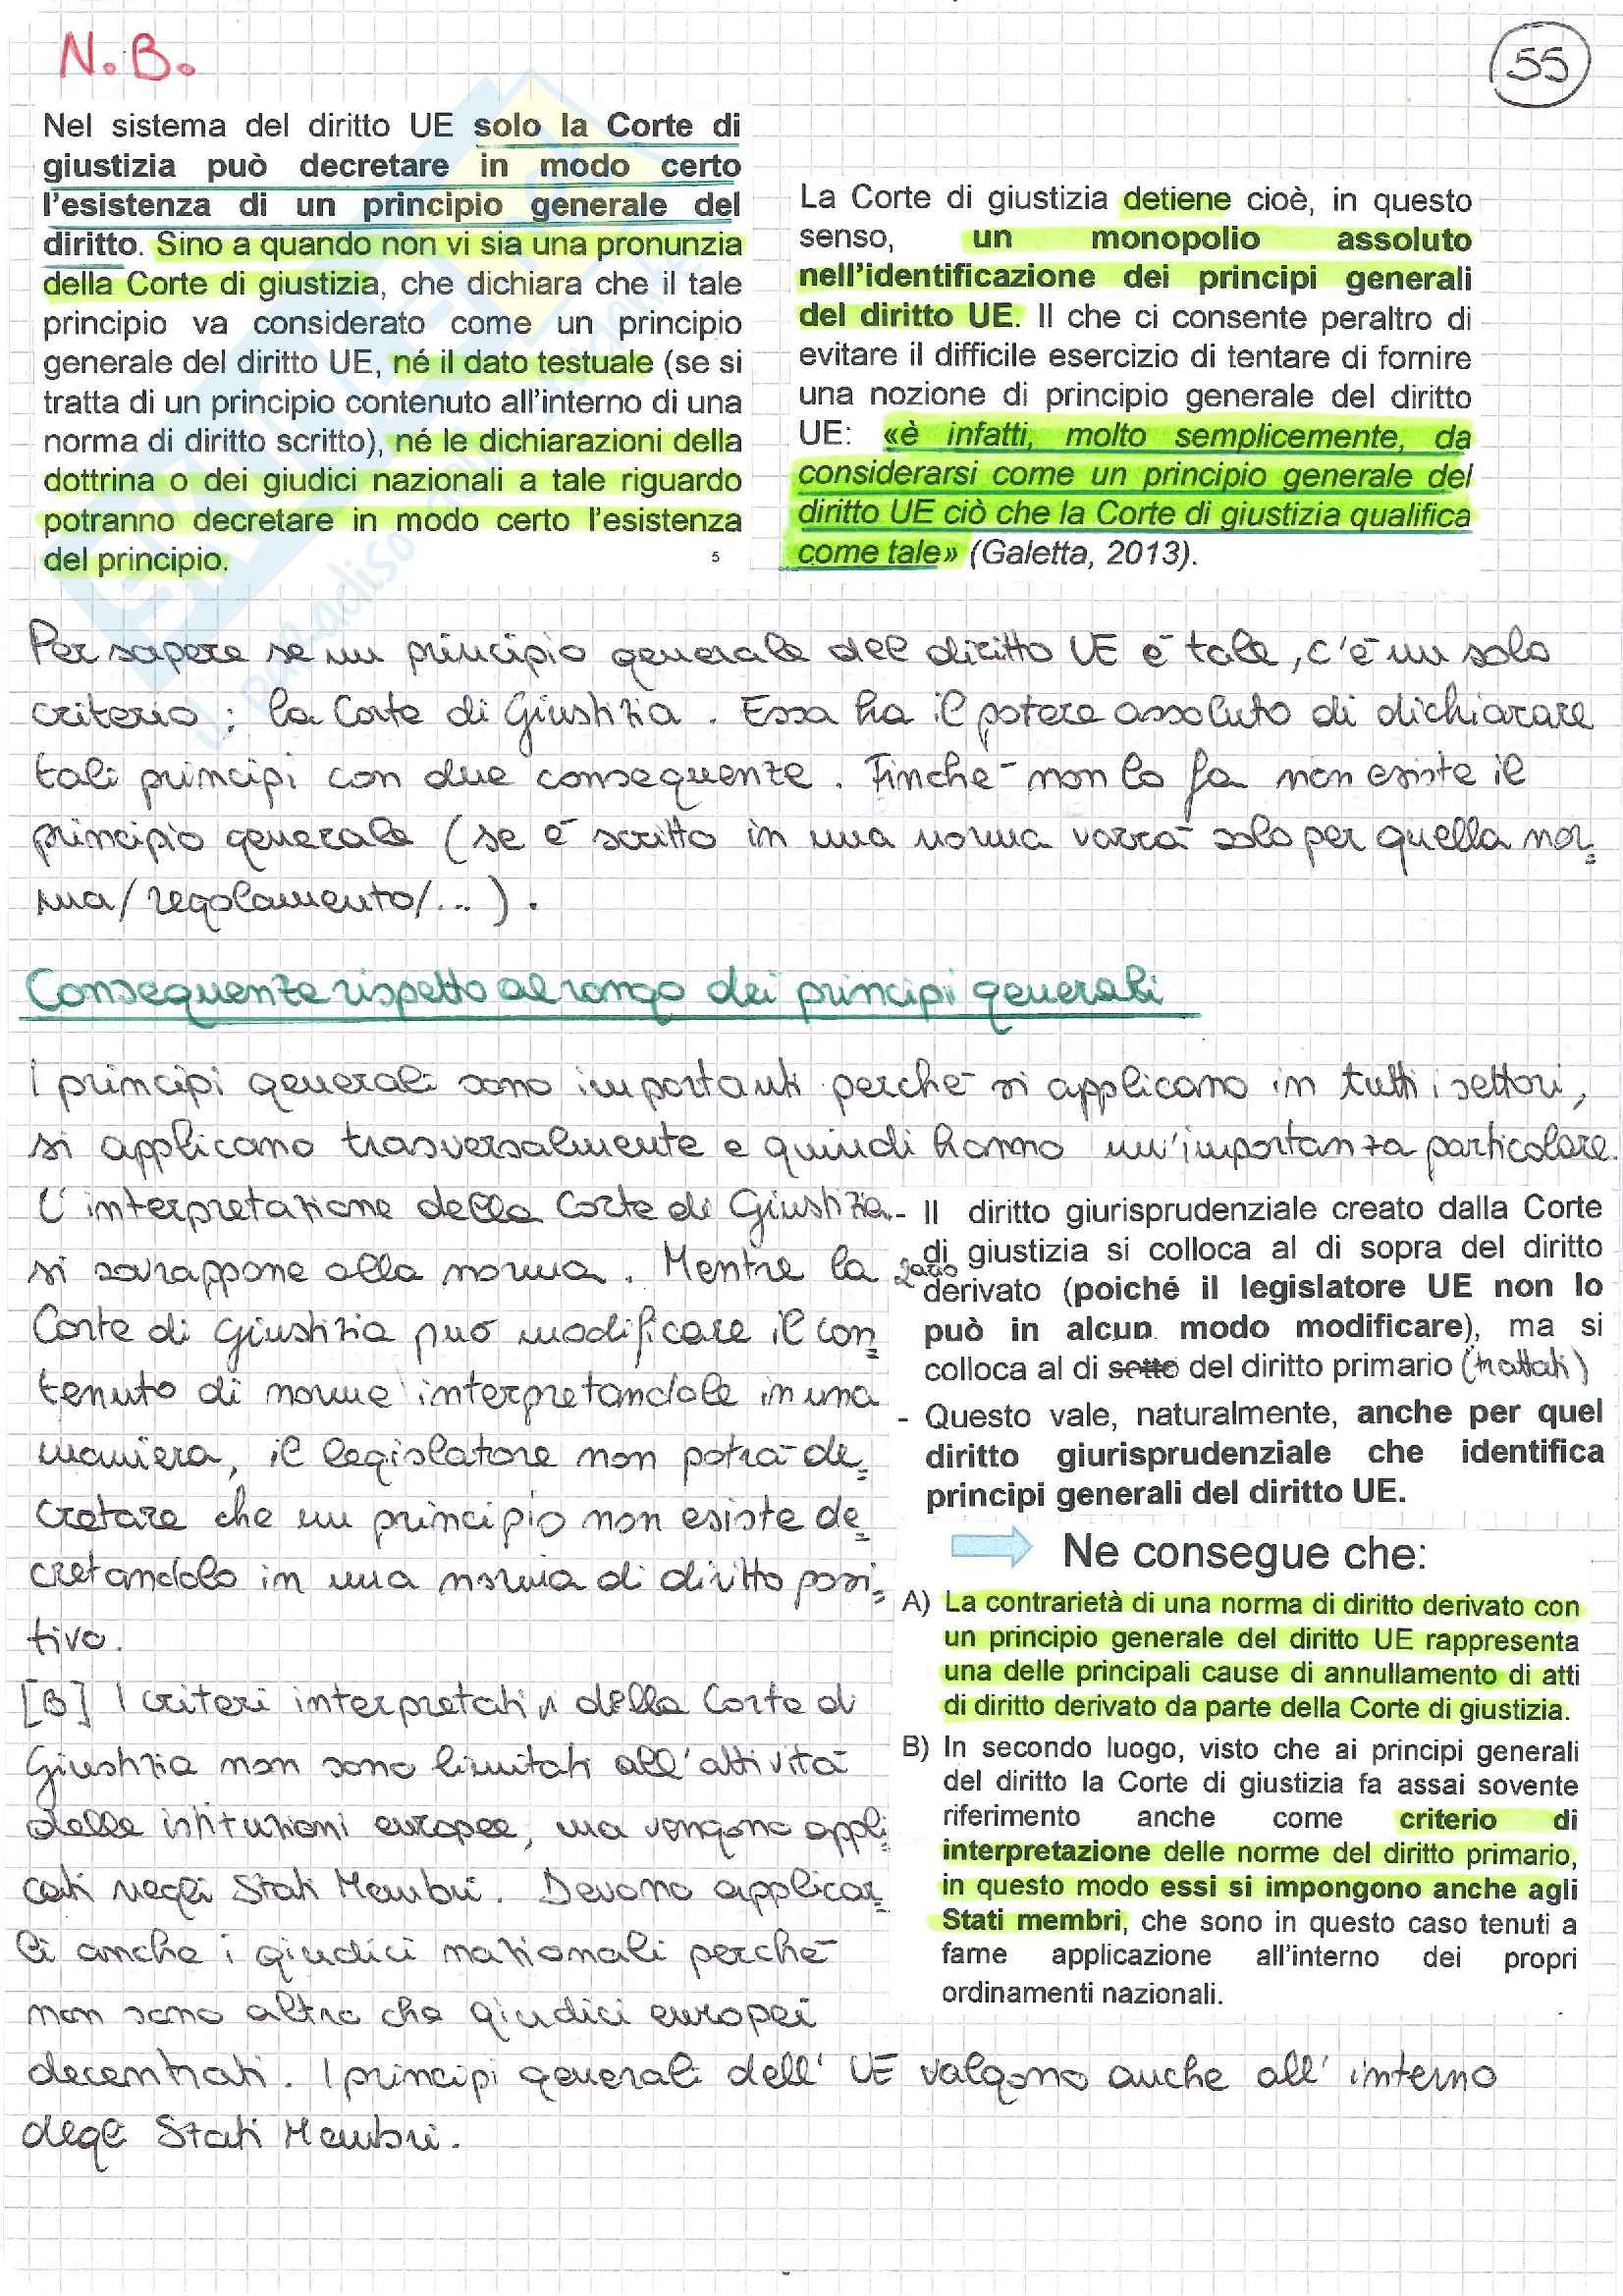 N.B.
55
Nel sistema del diritto UE solo la Corte di
giustizia può decretare in modo certo
l'esistenza di un principio generale del
diritto. Sino a quando non vi sia una pronunzia
della Corte di giustizia, che dichiara che il tale
principio va considerato come un principio
generale del diritto UE, né il dato testuale (se si
tratta di un principio contenuto all'interno di una
norma di diritto scritto), né le dichiarazioni della
dottrina o dei giudici nazionali a tale riguardo
potranno decretare in modo certo l'esistenza
del principio.
5
La Corte di giustizia detiene cioè, in questo
senso, un monopolio assoluto
nell'identificazione dei principi generali
del diritto UE. Il che ci consente peraltro di
evitare il difficile esercizio di tentare di fornire
una nozione di principio generale del diritto
UE: «è infatti, molto semplicemente, da
considerarsi come un principio generale del
diritto UE ciò che la Corte di giustizia qualifica
come tale» (Galetta, 2013).
Per sapere se un principio generale del diritto UE è tale, c'è un solo
criterio: la Corte di Giustizia. Essa ha il potere assoluto di dichiarare
tali principi con due conseguenze. Finché non lo fa non esiste il
principio generale (se è scritto in una norma varrà solo per quella nor=
ma/regolamento/...).
Conseguenze rispetto al rango dei principi generali
I principi generali sono importanti perché si applicano in tutti i settori,
si applicano trasversalmente e quindi hanno un'importanza particolare.
L'interpretazione della Corte di Giustizia
si sovrappone alla norma. Mentre la
Corte di Giustizia può modificare il con=
tenuto di norme interpretandole in una
maniera, il legislatore non potrà de=
cretare che un principio non esiste de=
cretandolo in una norma di diritto posi=
tivo.
[B] I criteri interpretativi della Corte di
Giustizia non sono limitati all'attività
delle istituzioni europee, ma vengono appli=
cati negli Stati Membri. Devono applicar=
li anche i giudici nazionali perché
non sono altro che giudici europei
decentrati. I principi generali dell'UE valgono anche all'interno
degli Stati Membri.
- Il diritto giurisprudenziale creato dalla Corte
di giustizia si colloca al di sopra del diritto
derivato (poiché il legislatore UE non lo
può in alcun modo modificare), ma si
colloca al di sotto del diritto primario (trattati)
- Questo vale, naturalmente, anche per quel
diritto giurisprudenziale che identifica
principi generali del diritto UE.
Ne consegue che:
A) La contrarietà di una norma di diritto derivato con
un principio generale del diritto UE rappresenta
una delle principali cause di annullamento di atti
di diritto derivato da parte della Corte di giustizia.
B) In secondo luogo, visto che ai principi generali
del diritto la Corte di giustizia fa assai sovente
riferimento anche come criterio di
interpretazione delle norme del diritto primario,
in questo modo essi si impongono anche agli
Stati membri, che sono in questo caso tenuti a
farne applicazione all'interno dei propri
ordinamenti nazionali.